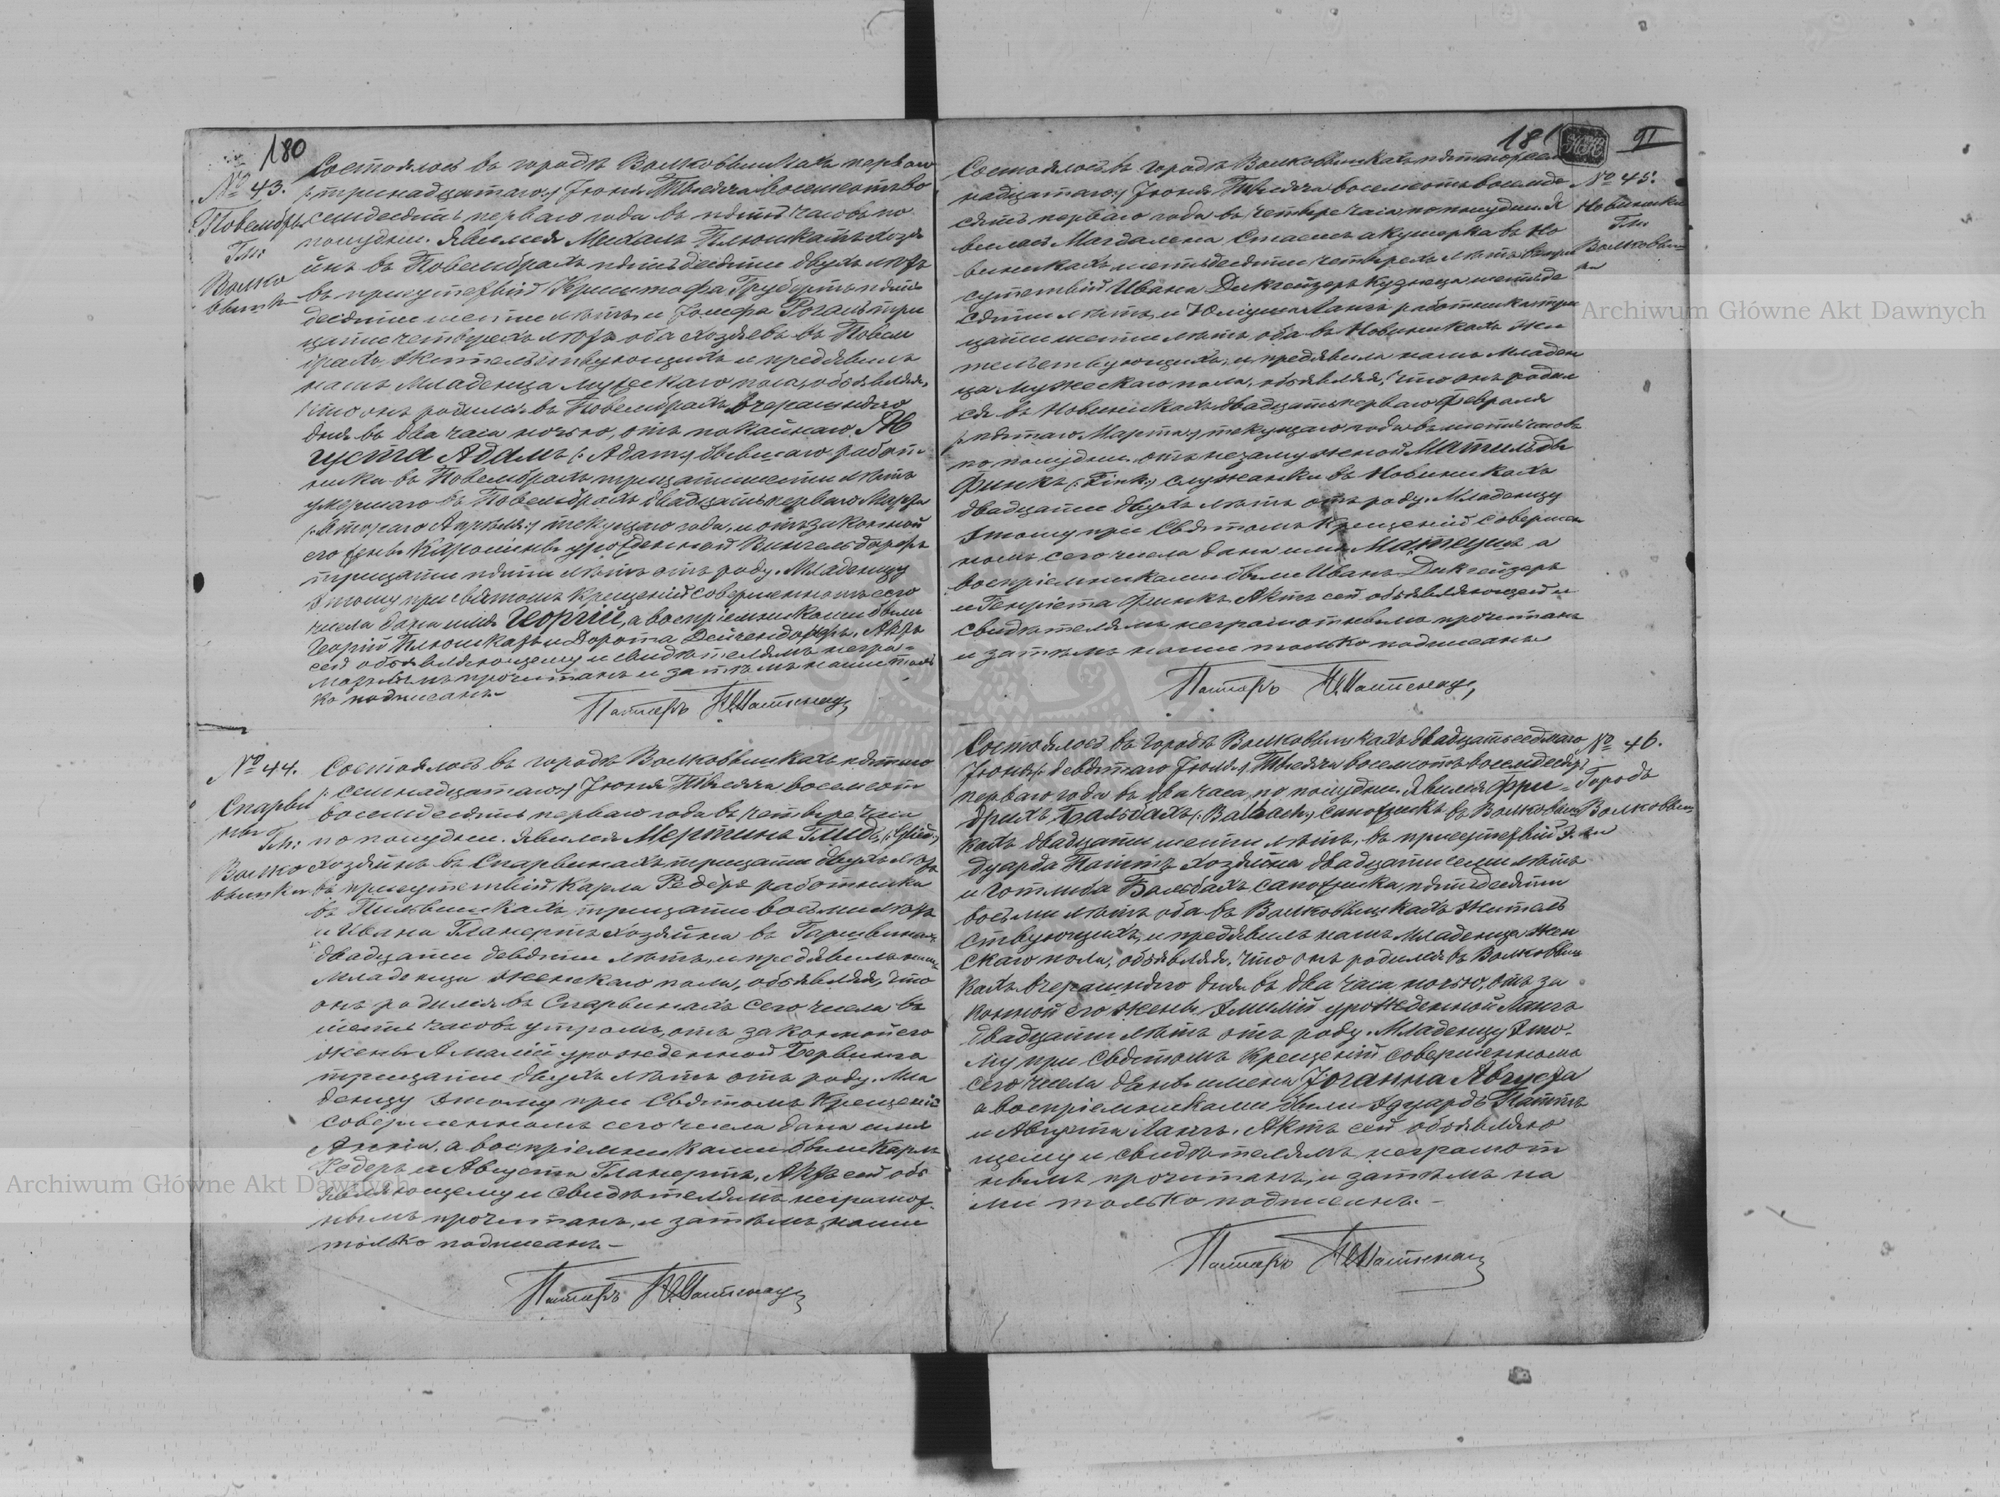 180
№ 43.
Повембры
Гм:
Волко
вышки
Состоялось въ городѣ Волковышкахъ перваго
/:тринадцатаго:/ Іюня Тысяча восемьсотъ во
семьдесятъ перваго года въ пять часовъ по
полудни. Явился Михалъ Плюшкатъ хозя
инъ въ Повембрахъ пятьдесяти двухъ лѣтъ
въ присутствіи Кристофа Груберта пяти
десяти шести лѣтъ, и Іосифа Рогалъ три
цати четырехъ лѣтъ оба хозяевъ въ Повем
брахъ жительствующихъ и предъявилъ
намъ Младенца мужескаго пола, объявляя,
что онъ родился въ Повембрахъ вчерашняго
дня въ два часа ночью, отъ покойнаго Ав
густа Адамъ /:Adam:/ бывшаго работ
ника въ Повембрахъ трицати шести лѣтъ
умершаго въ Повембрахъ двадцать перваго Марта
/:втораго Апрѣля:/ текущаго года, и отъ законной
его жены Каролины урожденной Вингельдорфъ
трицати пяти лѣтъ отъ роду. Младенцу
этому при святомъ Крещеніи совершенномъ сего
числа дано имя Георгій, а воспріемниками были
Георгій Плюшкатъ и Дорота Дейчендорфъ. Актъ
сей объявляющему и свидѣтелямъ негра=
мотнымъ прочитанъ и затѣмъ нами толь
ко подписанъ.
Пасторъ
№ 44.
Спарви
ны
Гм:
Волко
вышки
Состоялось въ городѣ Волковышкахъ пятаго
/:семнадцатаго:/ Іюня Тысяча восемьсот
восемьдесятъ перваго года въ четыре часа
по полудни. Явился Мертинъ Глидъ,
хозяинъ въ Спарвинахъ трицати двухъ лѣтъ
въ присутствіи Карла Редеръ работника
въ Пильвишкахъ трицати восьми лѣтъ
и Ивана Планертъ хозяина въ
двадцати девяти лѣтъ, и предъявилъ намъ
Младенца женскаго пола, объявляя, что
онъ родился въ Спарвинахъ сего числа въ
шесть часовъ утромъ, отъ законной его
жены Амаліи урожденной Бервингъ
трицати двухъ лѣтъ отъ роду. Мла
денцу этому при Святомъ Крещеніи
совершенномъ сего числа дано имя
Анна, а воспріемниками были Карлъ
Редеръ и Августа Планертъ, Актъ сей объ
являющему и свидѣтелямъ неграмот
нымъ прочитанъ, и затѣмъ нами
только подписанъ.—
Пасторъ
181
91
№ 45.
Новиники
Гм:
Волковыш
ки
Состоялось въ городѣ Волковышкахъ
надцатаго:/ Іюня Тысяча восемьсотъ восемьде
сятъ перваго года въ четыре часа по полудни. Я
вилась Магдалена Стасель акушерка въ Но
виникахъ шестьдесяти четырехъ лѣтъ въ при
сутствіи Ивана Диксейзеръ кузнеца шестьде
сяти лѣтъ, и Юліуша Лангъ работника три
цати шести лѣтъ оба въ Новиникахъ жи
тельствующихъ, и предъявила намъ Младен
ца мужескаго пола, объявляя, что онъ родил
ся въ Новиникахъ двадцать перваго Февраля
/:пятаго Марта:/ текущаго года въ шесть часовъ
по полудни отъ незамужной Матильды
Финкъ /:Fink:/ служанки въ Новиникахъ
двадцати двухъ лѣтъ отъ роду. Младенцу
этому при Святомъ Крещеніи совершен
номъ сего числа дано имя Матеушъ а
воспріемниками были Иванъ Диксейзеръ
и Генріета Финкъ. Актъ сей объявляющей и
свидѣтелямъ неграмотнымъ прочитанъ
и затѣмъ нами только подписанъ.
Пасторъ
№ 46.
Городъ
Волковыш
ки
Состоялось въ городѣ Волковышкахъ двадцать седмаго
Іюня /:девятаго Іюля:/ Тысяча восемьсотъ восемьдесятъ
перваго года въ два часа, по полудни. Явился Фри=
дрихъ Бальбахъ /:Balbach:/ сапожникъ въ Волковыш
кахъ двадцати шести лѣтъ, въ присутствіи Э
дуарда Паттъ хозяина двадцати семи лѣтъ
и Готлиба Бальбахъ сапожника, пятьдесяти
восьми лѣтъ оба въ Волковышкахъ житель
ствующихъ, и предъявилъ намъ Младенца жен
скаго пола, объявляя, что онъ родился въ Волковыш
кахъ вчерашняго дня въ два часа ночью, отъ за
конной его жены Эмиліи урожденной Лангъ
двадцати лѣтъ отъ роду. Младенцу это=
му при Святомъ Крещеніи совершенномъ
сего числа даны имена Іоганна Августа
а воспріемниками были Эдуардъ Паттъ
и Августа Лангъ. Актъ сей объявляю
щему и свидѣтелямъ неграмот
нымъ прочитанъ, и затѣмъ на
ми только подписанъ.—
Пасторъ
Archiwum Główne Akt Dawnych
Archiwum Główne Akt Dawnych